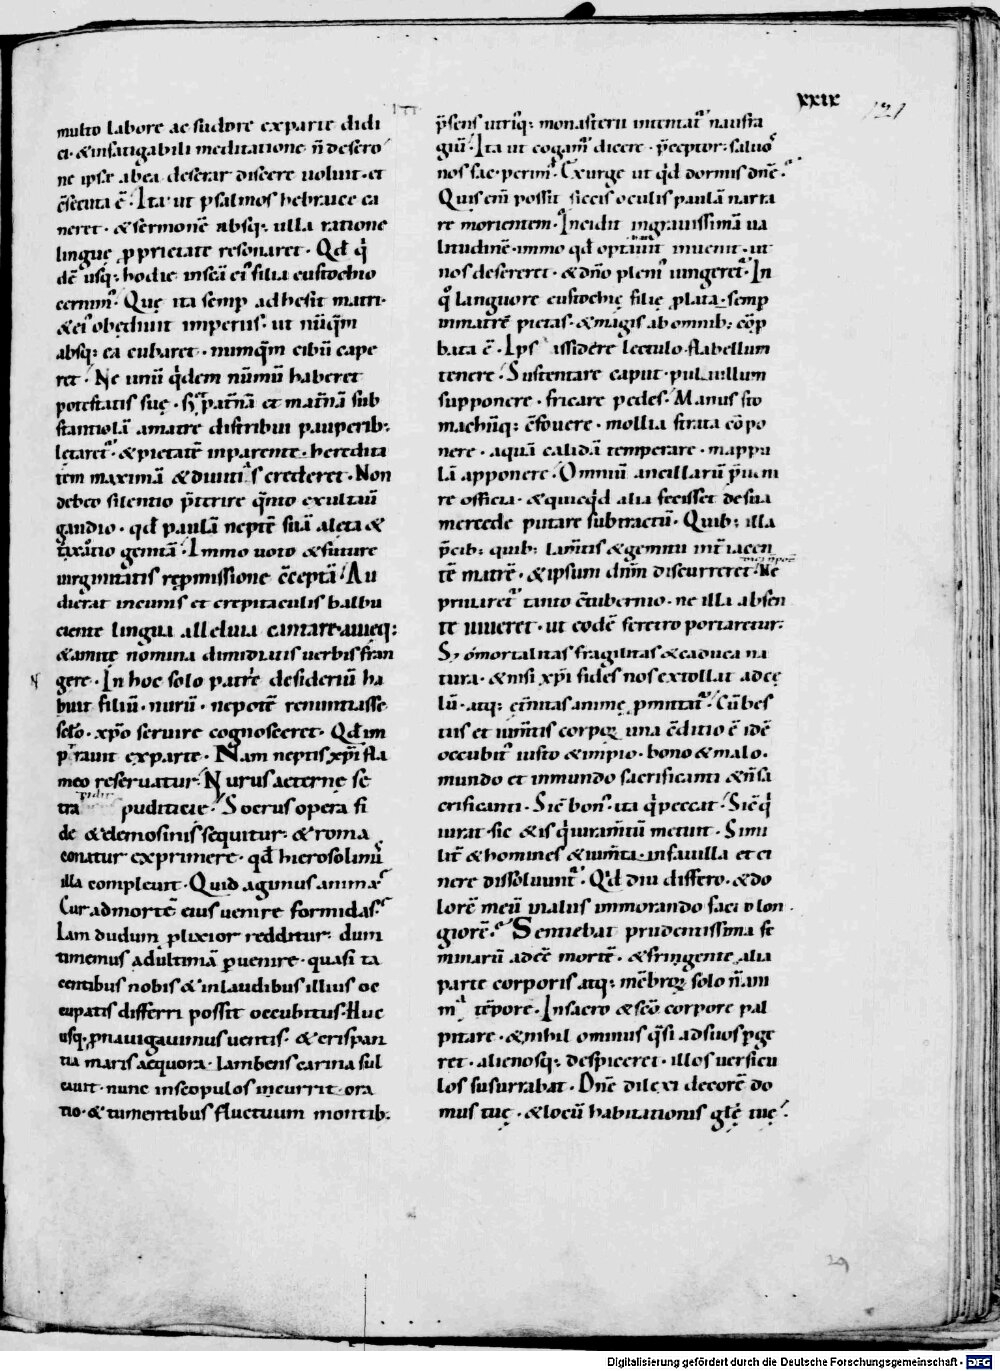 xxix
121
multo labore ac sudore ex parte didi
ci · & infatigabili meditatione n̄ desero
ne ipse ab ea deserar discere uoluit · et
c̄secuta ē · Ita ut psalmos hebraice ca
neret · & sermonē absq; ulla ratione
linguę p̱prietate resonaret · Qd̄ q̇
dē usq; hodie in sc̄a eiꝰ filia eustochio
cernimꝰ · Quę ita semp̱ adhesit matri ·
& eiꝰ obędiuit imperiis · ut nūq̄m
absq; ea cubaret · numq̄m cibū cape
ret · Ne unū q̇dem nūmū haberet
potestatis suę · s; pat̄nā et mat̄nā sub
stantiolā a matre distribui pauperib;
lętaretᷣ · & pietatē in parente · heredita
tem maximā & diuitias crederet · Non
debeo silentio p̄terire q̄nto exultau̅
gaudio · qd̄ paulā neptē suā a leta &
toxotio genitā · Immo uoto & future
uirginitatis rep̱missione c̄ceptā · Au
dierat in cunis et crepitaculis balbu
ciente lingua alleluia cantare · auięq;
& amitę nomina dimidiatis uerbis fran
gere · In hoc solo patr̄e desideriū ha
buit filiū · nurū · nepotē renuntiasse
sc̄lo · xp̄o seruire cognosceret · Qd̄ im
petrauit ex parte · Nam neptis xp̄i fla
meo reseruatur · Nurus aeterne se
tra puditicie · Socrus opera fi
de & elemosinis sequitur · & romę
conatur exprimere · qd̄ hierosolimis
illa compleuit · Quid agimus anima
Cur ad mortē eius uenire formidas
Iam dudum p̱lixior redditur · dum
timemus ad ultimā p̱uenire · quasi ta
centibus nobis & in laudibus illius oc
cupatis differri possit occubitus · Huc
usq; p̱nauigauimus uentis · & crispan
tia maris aequora · lambens carina sul
cauit · nunc in scopulos incurrit · ora
tio · & tumentibus fluctuum montib;
p̄sens utriq; monasterii intentatᷣ naufra
giū · Ita ut cogamꝰ dicere · p̄ceptor · saluos
nos fac · perimꝰ · Exurge ut q̇d dormis dn̄e
Quis em̄ possit siccis oculis paulā narra
re morientem · Incidit in grauissimā ua
litudinē · immo qd̄ optauit inuenit · ut
nos desereret · & dn̄o pleniꝰ iungeretᷣ · In
q̊ languore eustochię filię p̱bata semp̱
in matrē pietas · & magis ab omnib; cōp̱
bata ē · Ipsa assidere lectulo · flabellum
tenere · Sustentare caput · puluillum
supponere · fricare pedes · Manu sto
machūq; c̄fouere · mollia strata cōpo
nere · aquā calidā temperare · mappu
lā apponere · Omniū ancillarū p̄ueni
re officia · & quicq̇d alia fecisset de sua
mercede putare subtractū · Quib; illa
p̄cib; quib; lam̄tis & gemitu int̄ iacen
tē matrē · & ipsum dn̄m discurreret · Ne
priuaretᷣ tanto c̄tubernio · ne illa absen
te uiueret · ut eodē feretro portaretur ·
S; o mortalitas fragilitas & caduca na
tura · & nisi xp̄i fides nos extollat ad cę
lū · atq; ęt̄nitas animę p̱mittatᷣ · Cū bes
tiis et ium̄tis corporꝝ una c̄ditio ē idē
occubitꝰ iusto & impio · bono & malo ·
mundo et inmundo sacrificanti & n̄ sa
crificanti · Sic̄ bonꝰ · ita q̇ peccat · Sic̄ q̇
iurat · sic & is q̇ iuram̄tū metuit · Simi
lit̄ & homines & ium̄ta · in fauilla et ci
nere dissoluuntᷣ · Qd̄ diu differo · & do
lorē meū malus inmorando facio lon
giorē · Sentiebat prudentissima fe
minarū adeē mortē · & frigente alia
parte corporis atq; mēbroꝝ solo n̄ am
tēpore · In sacro & sc̄o corpore pal
pitare · & nihil ominus q̄si ad suos p̱ge
ret · alienosq; despiceret · illos uersicu
los susurrabat · Dn̄e dilexi decorē do
mus tuę · & locū habitationis glę̄ tuę ·
29
Digitalisierung gefördert durch die Deutsche Forschungsgemeinschaft - DFG